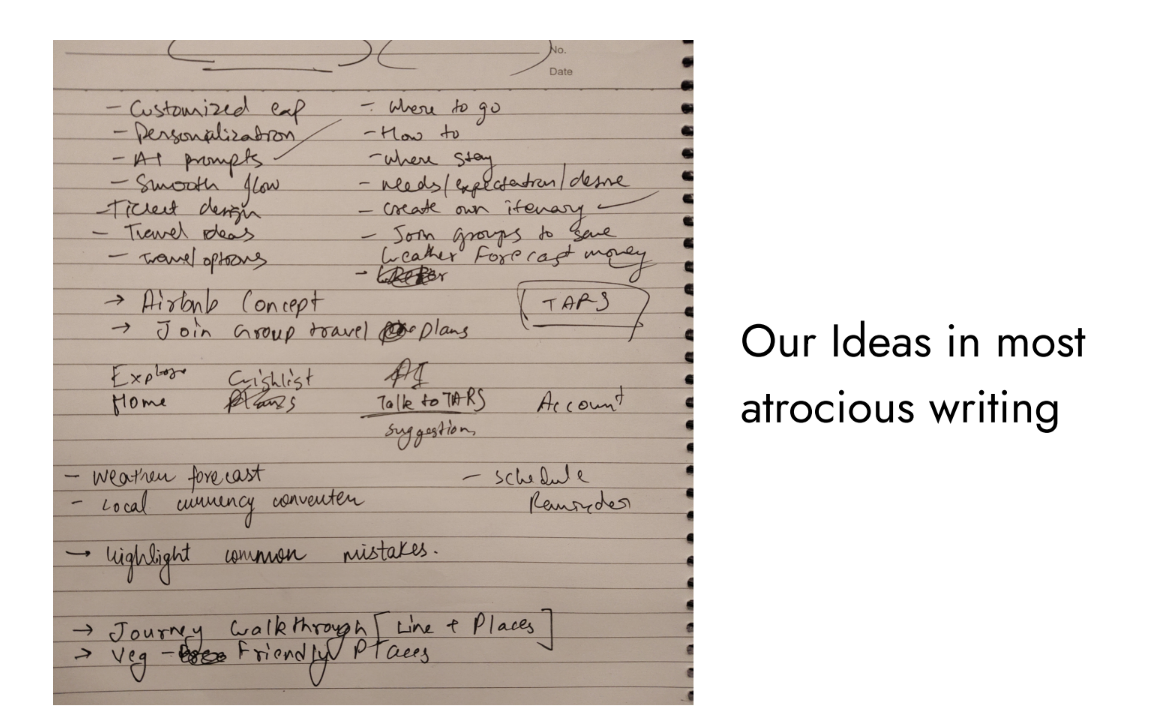 No.
Date
- Customized exp
- Personalization
- AI prompts
- Smooth flow
- Ticket design
- Travel Ideas
- Travel options
- Where to go
- How to
- where stay
- needs/expectation/desire
- create own itenary
- Join groups to save
money
Weather Forecast
-
→ Airbnb Concept
→ Join Group travel plans
TARS
Explore Wishlist AI
Home Plans Talk to TARS Account
suggestion
- Weather forecast - schedule
- Local currency conventer Reminder
→ highlight common mistakes.
→ Journey Walkthrough [Line + Places]
→ Veg - Friendly Places
Our Ideas in most
atrocious writing